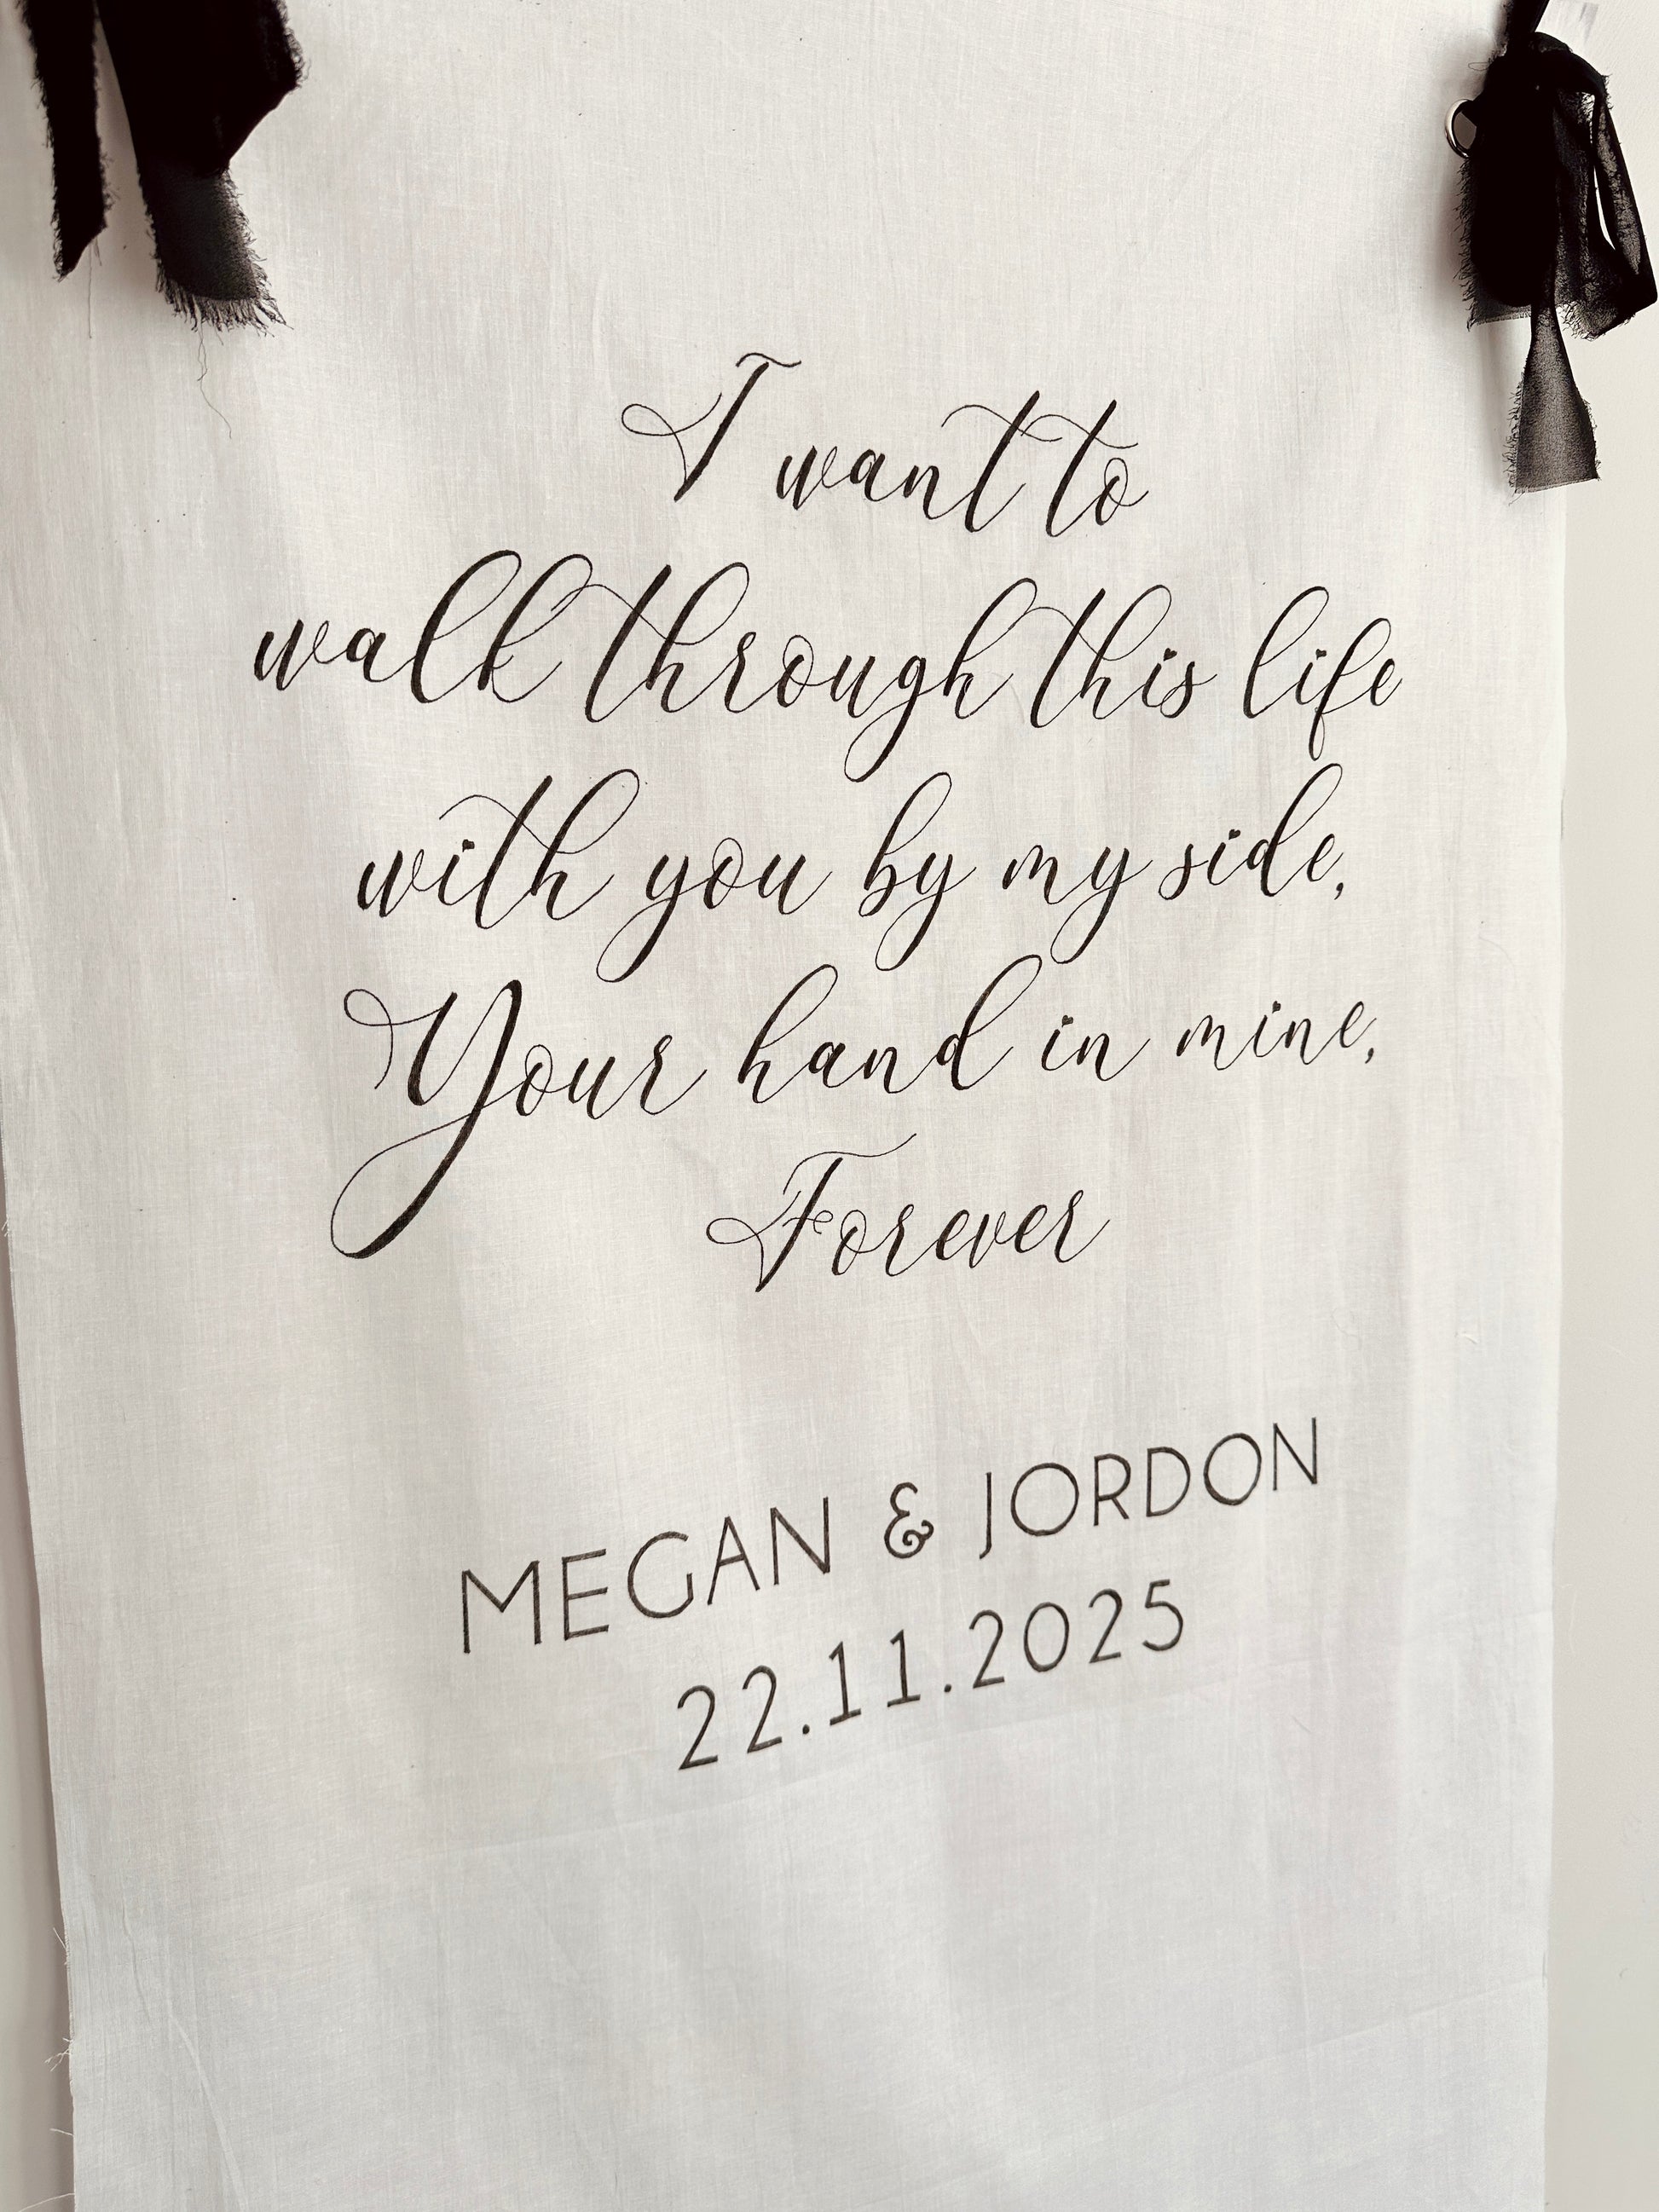 I want to
walk through this life
with you by my side,
Your hand in mine,
Forever
MEGAN & JORDON
22.11.2025